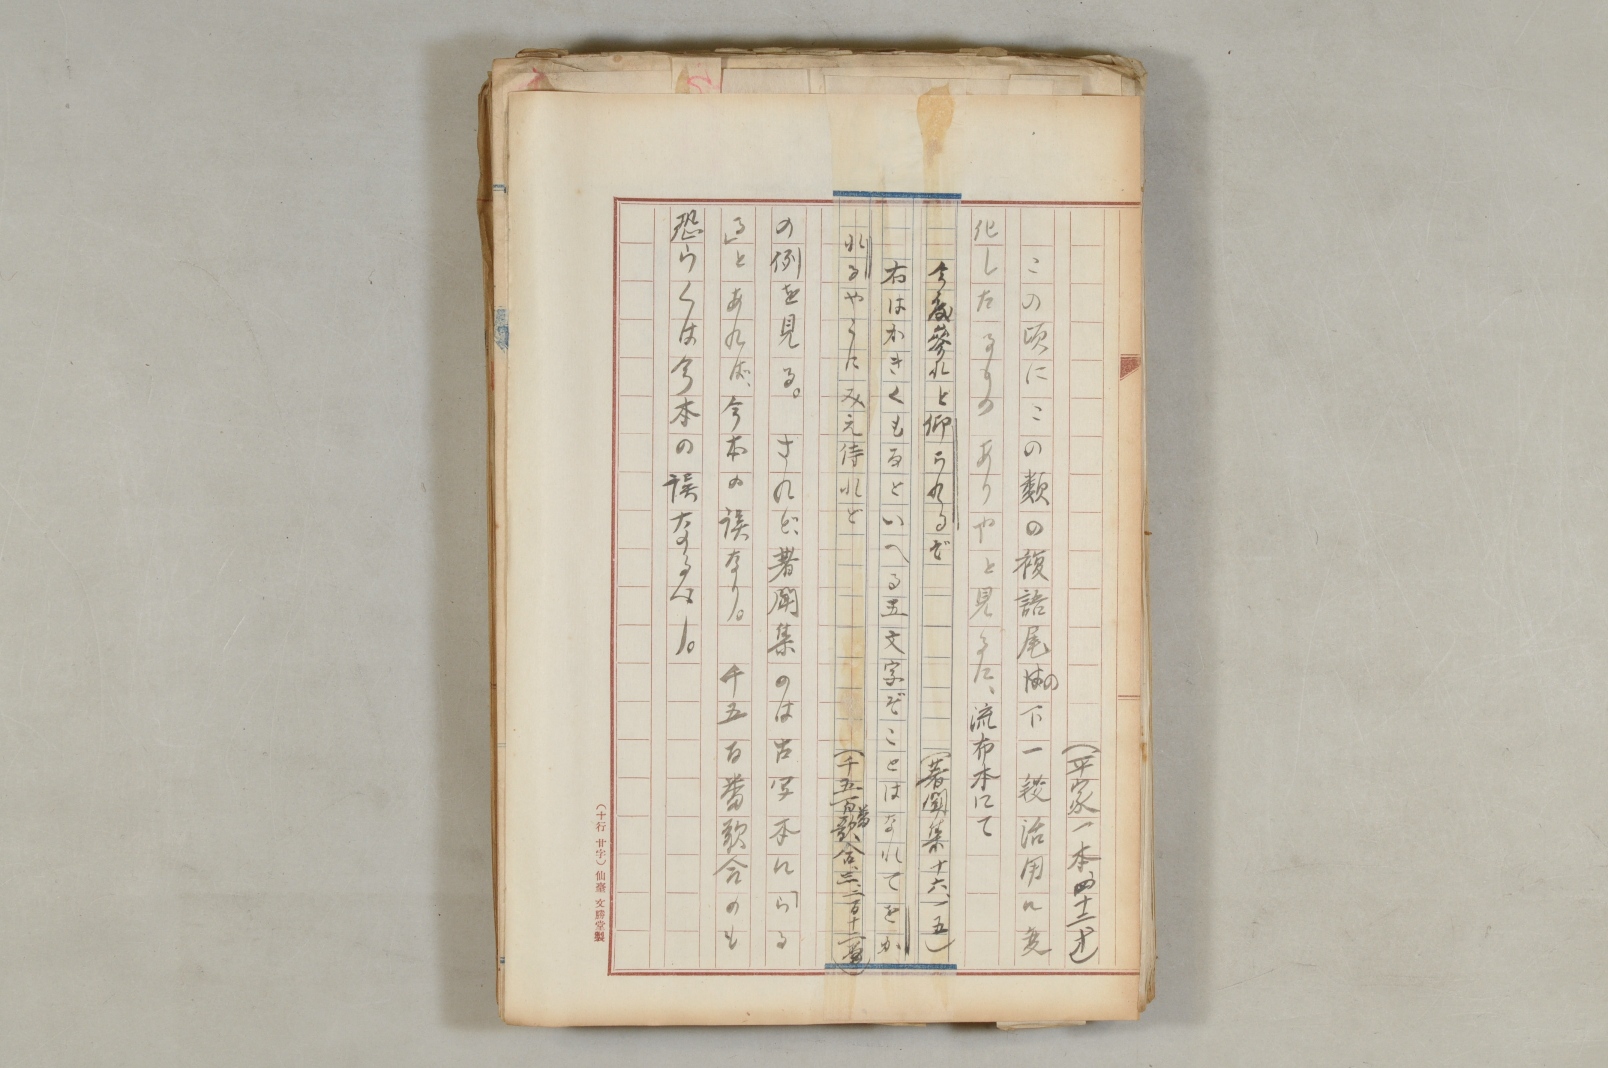 （平家一本、四十二オ）
この頃にこの類の複語尾の下一段活用に変
化したるものありやと見るに、流布本にて
今度参れと仰られるぞ（著聞集十六、一五）
右はかきくもるといへる五文字ぞことはなれてをか
れるやうにみえ侍れど（千五百番歌合、三、二百十一番）
の例を見る。されど、著聞集のは古写本に「らる
る」とあれば、今本の誤なり。千五百番歌合のも
恐らくは今本の誤なるべし。
（十行廿字）仙臺 文勝堂製